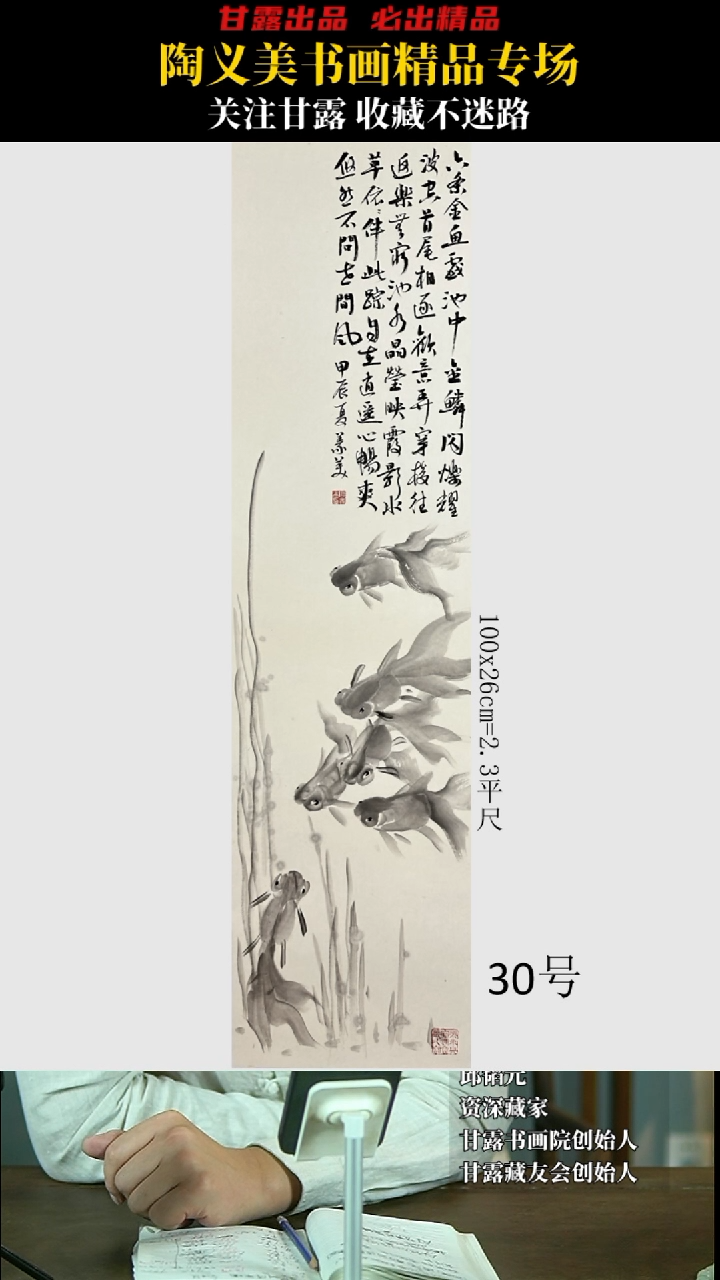 甘露出品 必出精品
陶义美书画精品专场
关注甘露 收藏不迷路
六条金鱼戏池中金鳞闪烁耀
波空首尾相逐欢意弄穿梭往
返樂無窮池水晶瑩映霞影水
草依依伴此踪自在逍遥心暢爽
悠然不問世間风 甲辰夏 義美
100x26cm=2.3平尺
30号
资深藏家
甘露书画院创始人
甘露藏友会创始人